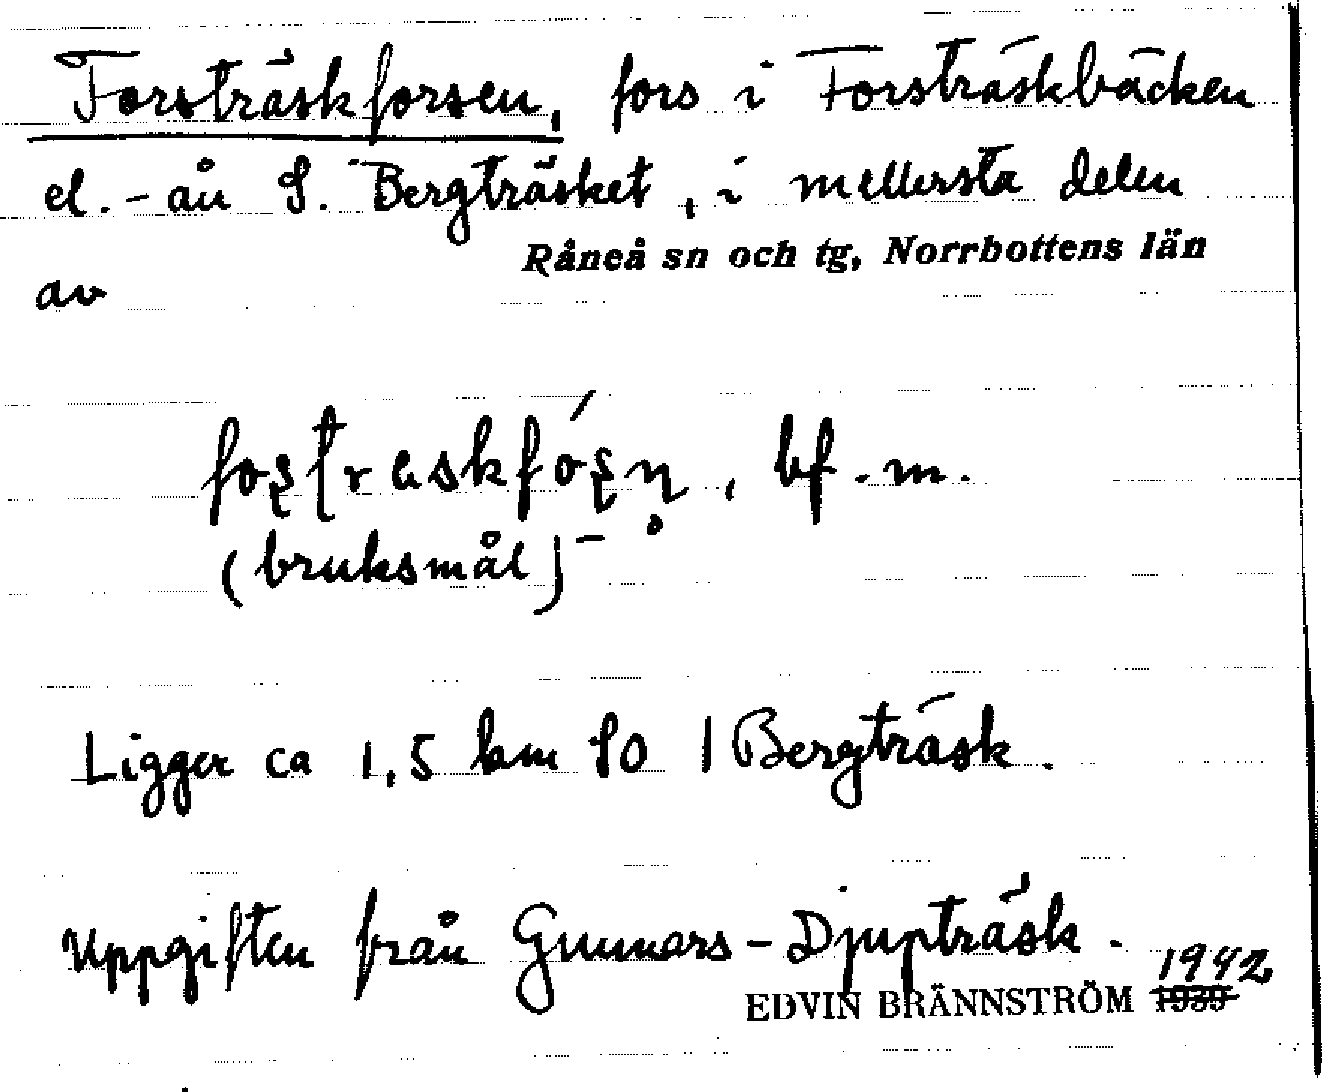 Forsträskforsen, fors i Forsträskbäcken
el. -ån S. Bergträsket, i mellersta delen
Råneå sn och tg, Norrbottens län
av
bf. m.
(bruksmål)
Ligger ca 1,5 km SO I Bergträsk.
Uppgiften från Gunnars-Djupträsk.
1942
EDVIN BRÄNNSTRÖM 1939